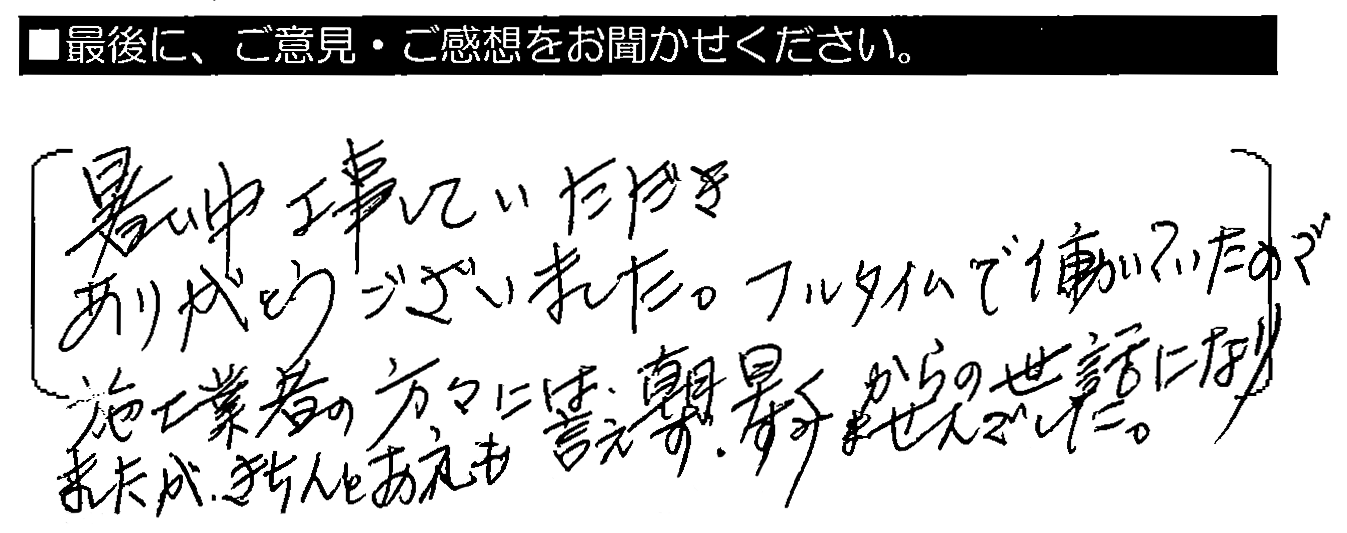 ■最後に、ご意見・ご感想をお聞かせください。
暑い中工事していただき
ありがとうございました。フルタイムで働いていたので
施工業者の方々には、朝早くからの世話になり
ましたが、きちんとお礼も言えず、すみませんでした。